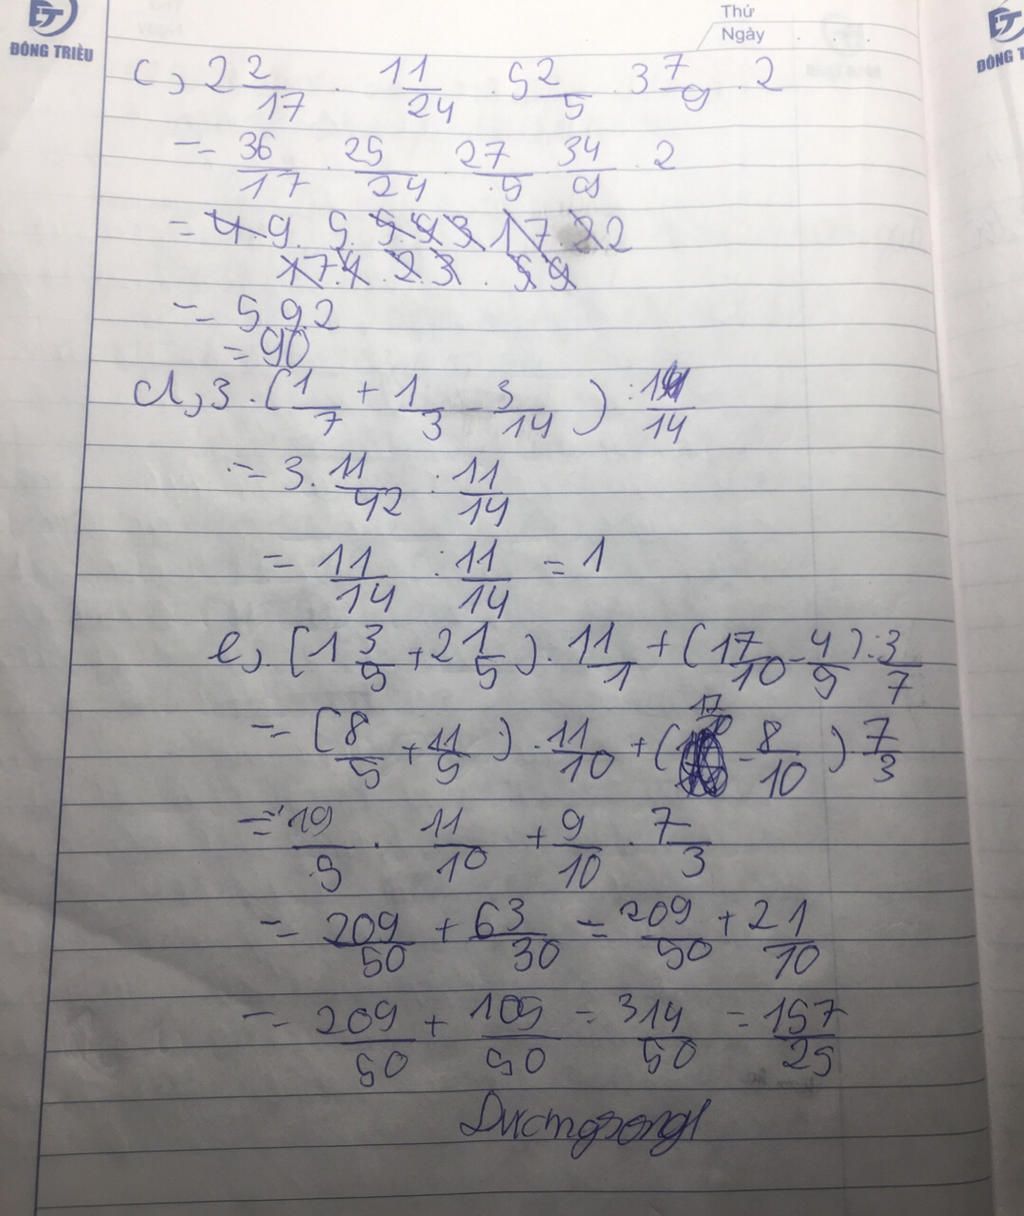 ĐÔNG TRIỀU
Thứ
Ngày . . .
ĐÔNG T
c, 2 2/17 . 11/24 . 5 2/5 . 3 7/9 . 2
= 36/17 . 25/24 . 27/5 . 34/9 . 2
= 4.9. 5. 5.9.3.17.2 2
17.4.2.3.59
= 5.9.2
= 90
d, 3 . (1/7 + 1/3 - 3/14) : 11/14
= 3. 11/42 : 11/14
= 11/14 : 11/14 = 1
e, (1 3/5 + 2 1/5) . 11/1 + (17/10 - 4/5) : 3/7
= (8/5 + 11/5) . 11/10 + (17/10 - 8/10) 7/3
= 19/5 . 11/10 + 9/10 . 7/3
= 209/50 + 63/30 = 209/50 + 21/10
= 209/50 + 105/50 = 314/50 = 157/25